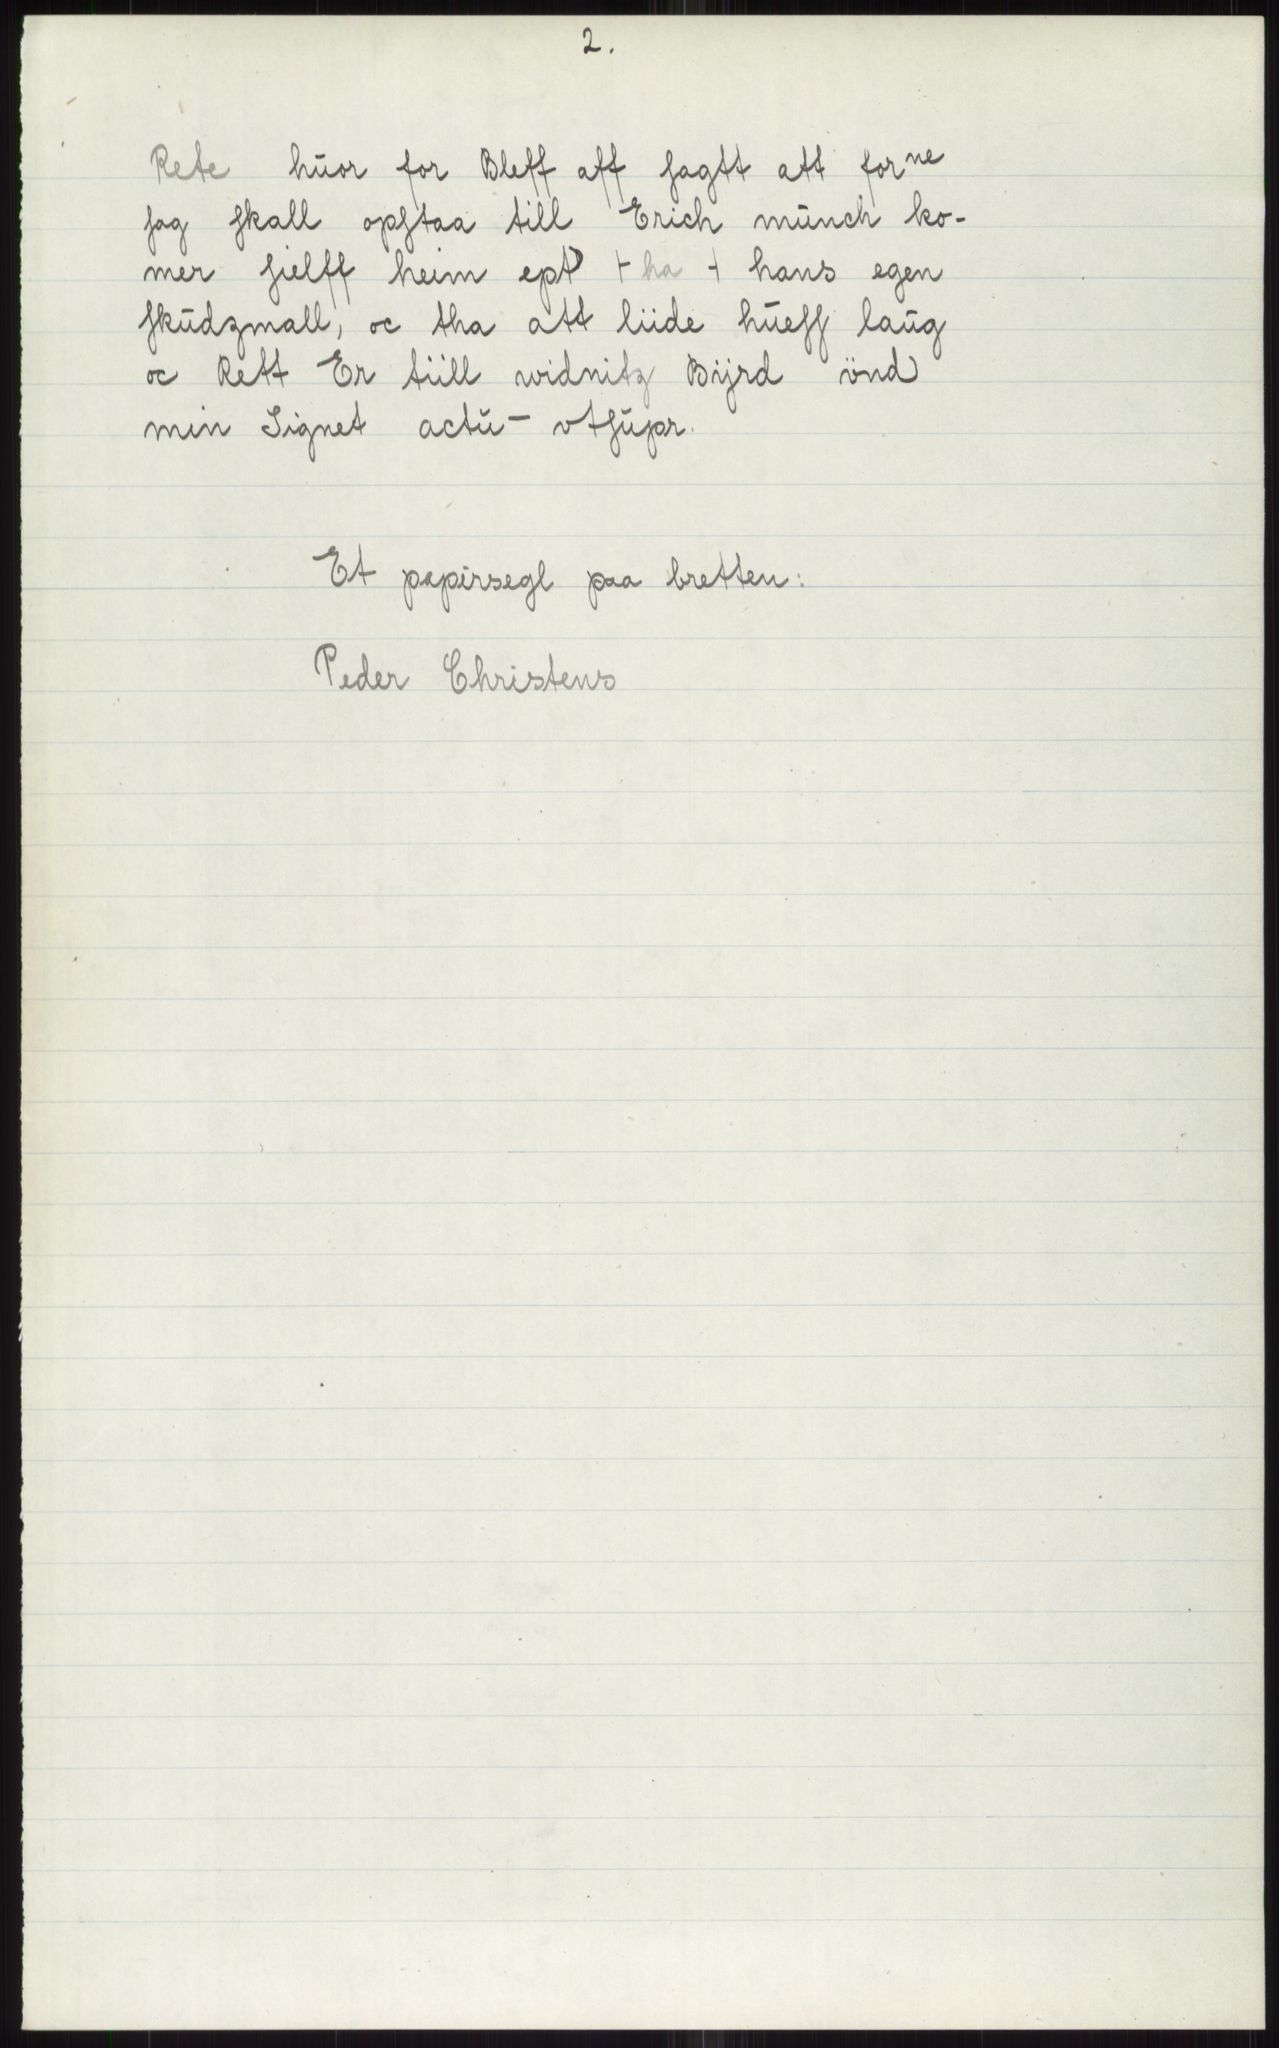 2.
Rete hūor for Bleff aff sagtt att forne
sag skall opstaa till Erich mūnch ko-
mer sielff heim ept + ha + hans egen
skūdzmall, oc tha att liide hūess laūg
oc Rett Er tiill widnitz Bijrd vnd
min Signet actū- vtsūpr.
Et papirsegl paa bretten:
Peder Christens